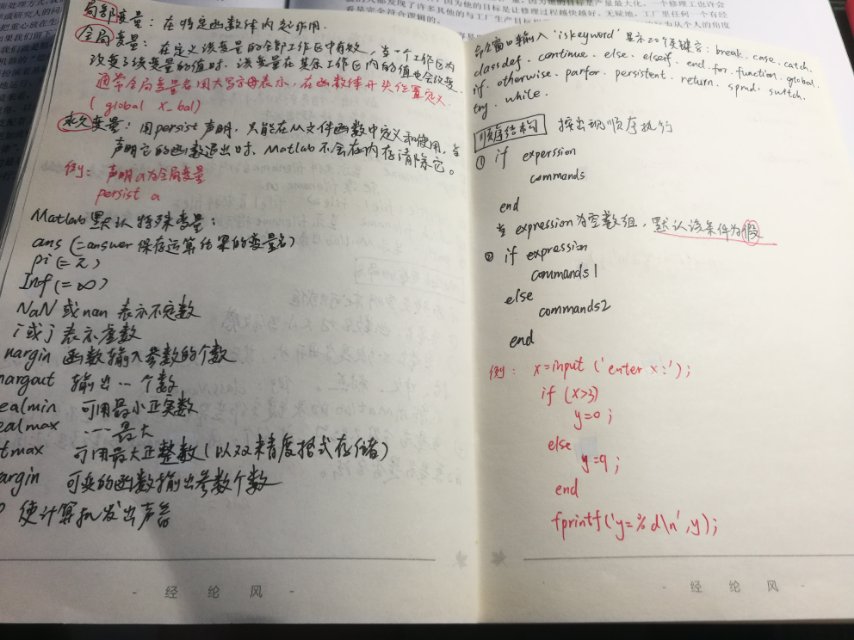 局部变量：在特定函数体内起作用.
全局变量：在定义该变量的全部工作区中有效，当一个工作区内
改变该变量的值时，该变量在其余工作区内的值也会改变
通常全局变量名用大写字母表示，在函数体开头位置定义.
( global X_bal)
永久变量：用persist声明，只能在M文件函数中定义和使用，当
声明它的函数退出时，Matlab不会在内存清除它。
例：声明a为全局变量
persist a
Matlab默认特殊变量：
ans (=answer保存运算结果的变量名)
pi (=π)
Inf (=∞)
NaN 或nan 表示不定数
i或j 表示虚数
nargin 函数输入参数的个数
nargout 输出…个数
ealmin 可用最小正实数
ealmax …最大
tmax 可用最大正整数(以双精度格式存储)
argin 可变的函数输出参数个数
使计算机发出声音
经 纶 风
命令窗口输入‘iskeyword’显示20个关键字：break. case. catch.
classdef. continue. else. elseif. end. for. function. global.
if. otherwise. parfor. persistent. return. spmd. switch.
try. while.
顺序结构 按出现顺序执行
① if experssion
commands
end
当 expression为空数组，默认该条件为假
② if expression
commands1
else
commands2
end
例： x=input ('enter x:');
if (x>3)
y=0 ;
else
y=9 ;
end
fprintf('y=%d\n',y);
经 纶 风